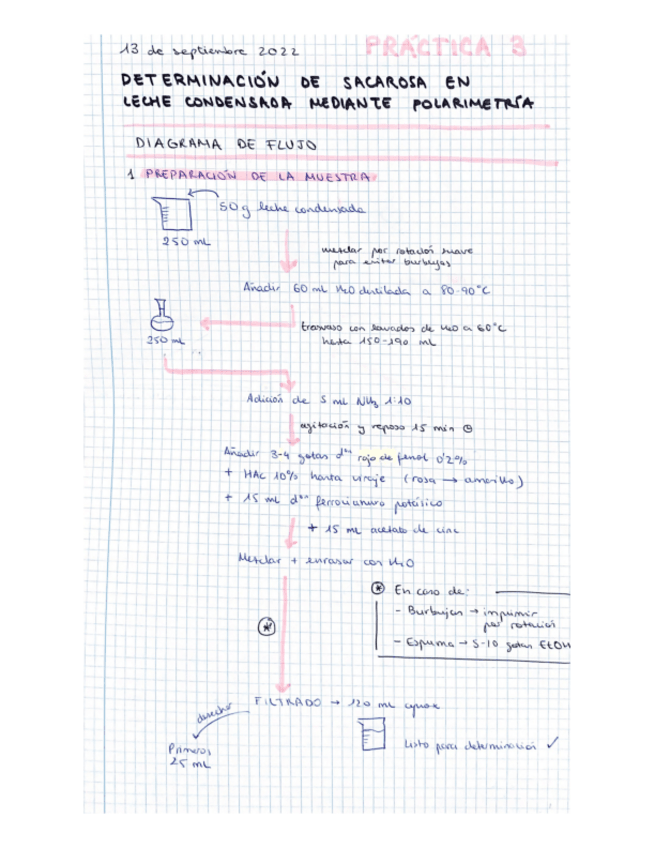 13 de septiembre 2022 PRÁCTICA 3
DETERMINACIÓN DE SACAROSA EN
LECHE CONDENSADA MEDIANTE POLARIMETRÍA
DIAGRAMA DE FLUJO
1 PREPARACIÓN DE LA MUESTRA
50 g leche condensada
250 mL
mezclar por rotación suave
para evitar burbujas
Añadir 60 mL H2O destilada a 80-90°C
trasvaso con lavados de H2O a 60°C
hasta 150-190 mL
250 mL
Adición de 5 mL NH3 1:10
agitación y reposo 15 min
Añadir 3-4 gotas dˢⁿ rojo de fenol 0'2%
+ HAC 10% hasta viraje (rosa → amarillo)
+ 15 mL dˢⁿ ferrocianuro potásico
+ 15 mL acetato de cinc
Mezclar + enrasar con H2O
* En caso de:
- Burbujas → imprimir
por rotación
- Espuma → 5-10 gotas EtOH
*
FILTRADO → 120 mL aprox
desechar
Primeros
25 mL
Listo para determinación ✓